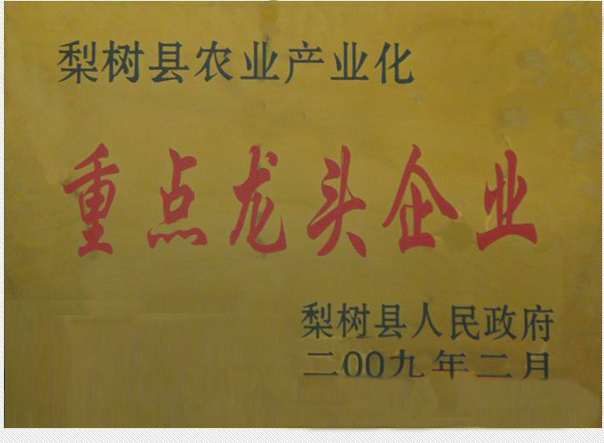 梨树县农业产业化
重点龙头企业
梨树县人民政府
二00九年二月